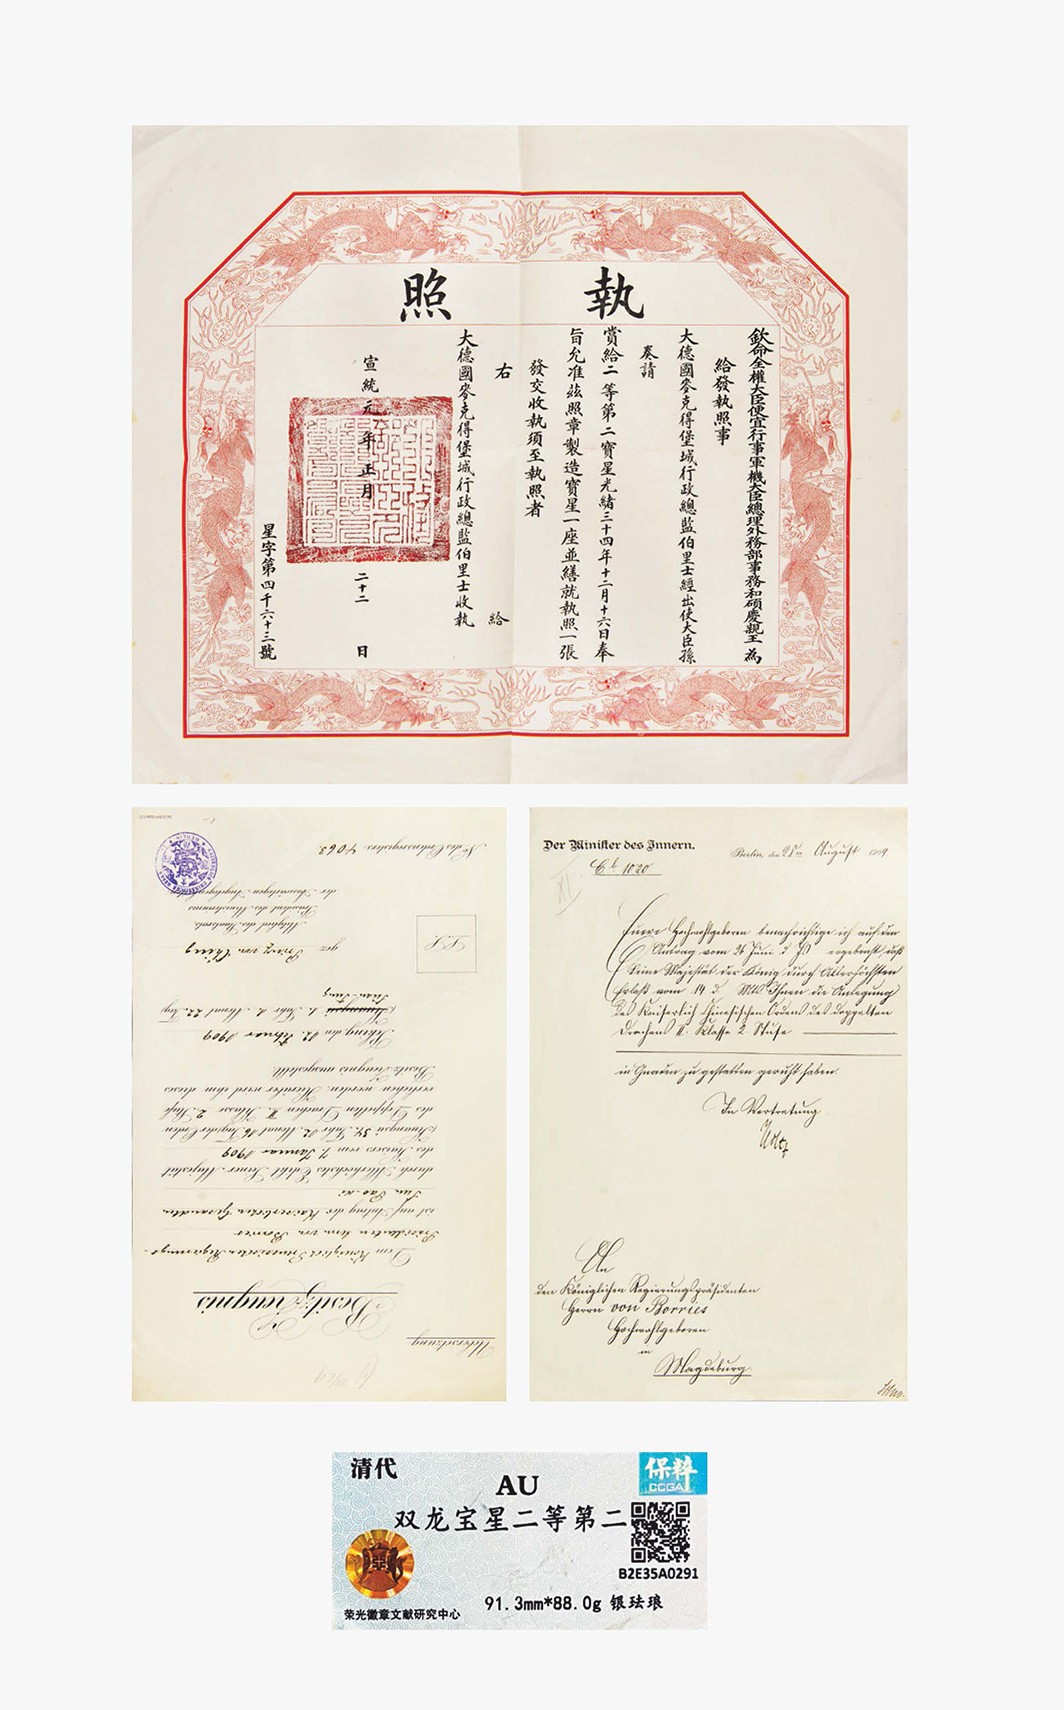 執照
欽命全權大臣便宜行事軍機大臣總理外務部事務和碩慶親王為
給發執照事
大德國麥克得堡城行政總監伯里士經出使大臣孫
奏請
賞給二等第二寶星光緒三十四年十二月十六日奉
旨允准茲照章製造寶星一座並繕就執照一張
發交收執須至執照者
右給
大德國麥克得堡城行政總監伯里士收執
宣統元年正月二十二日
星字第四千六十三號
Uebersetzung
Besitz-Zeugnis
Dem Königlich Preussischen Regierungs-
Präsidenten Herrn von Borries
ist auf Antrag des Kaiserlichen Gesandten
Sun Pao-ki
durch Allerhöchstes Edikt Seiner Majestät
des Kaisers vom 7. Januar 1909
Kuangsü 34. Jahr 12. Monat 16. Tag der Orden
des Doppelten Drachen II. Klasse 2. Stufe
verliehen worden. Hierüber wird ihm dieses
Besitz-Zeugnis ausgestellt.
Peking den 12. Februar 1909
1. Jahr 1. Monat 22. Tag
Süan Tung
L.S.
gez. Prinz von Ching
Mitglied des Staatsrats
Präsident des Ministeriums
der Auswärtigen Angelegenheiten
No des Ordensregisters 4063.
Der Minister des Innern.
Berlin, den 28ten August 1909.
C b 1020
Euere Hochwohlgeboren benachrichtige ich auf den
Antrag vom 26 Juni d. Js ergebenst, daß
Seine Majestät der König durch Allerhöchsten
Erlaß vom 14 d. Mts Ihnen die Anlegung
des Kaiserlich Chinesischen Ordens des doppelten
Drachens II. Klasse 2. Stufe
in Gnaden zu gestatten geruht haben.
In Vertretung
An
den Königlichen Regierungspräsidenten
Herrn von Borries
Hochwohlgeboren
in
Magdeburg.
清代
AU
保粹
CCGA
双龙宝星二等第二
B2E35A0291
91.3mm*88.0g 银珐琅
荣光徽章文献研究中心